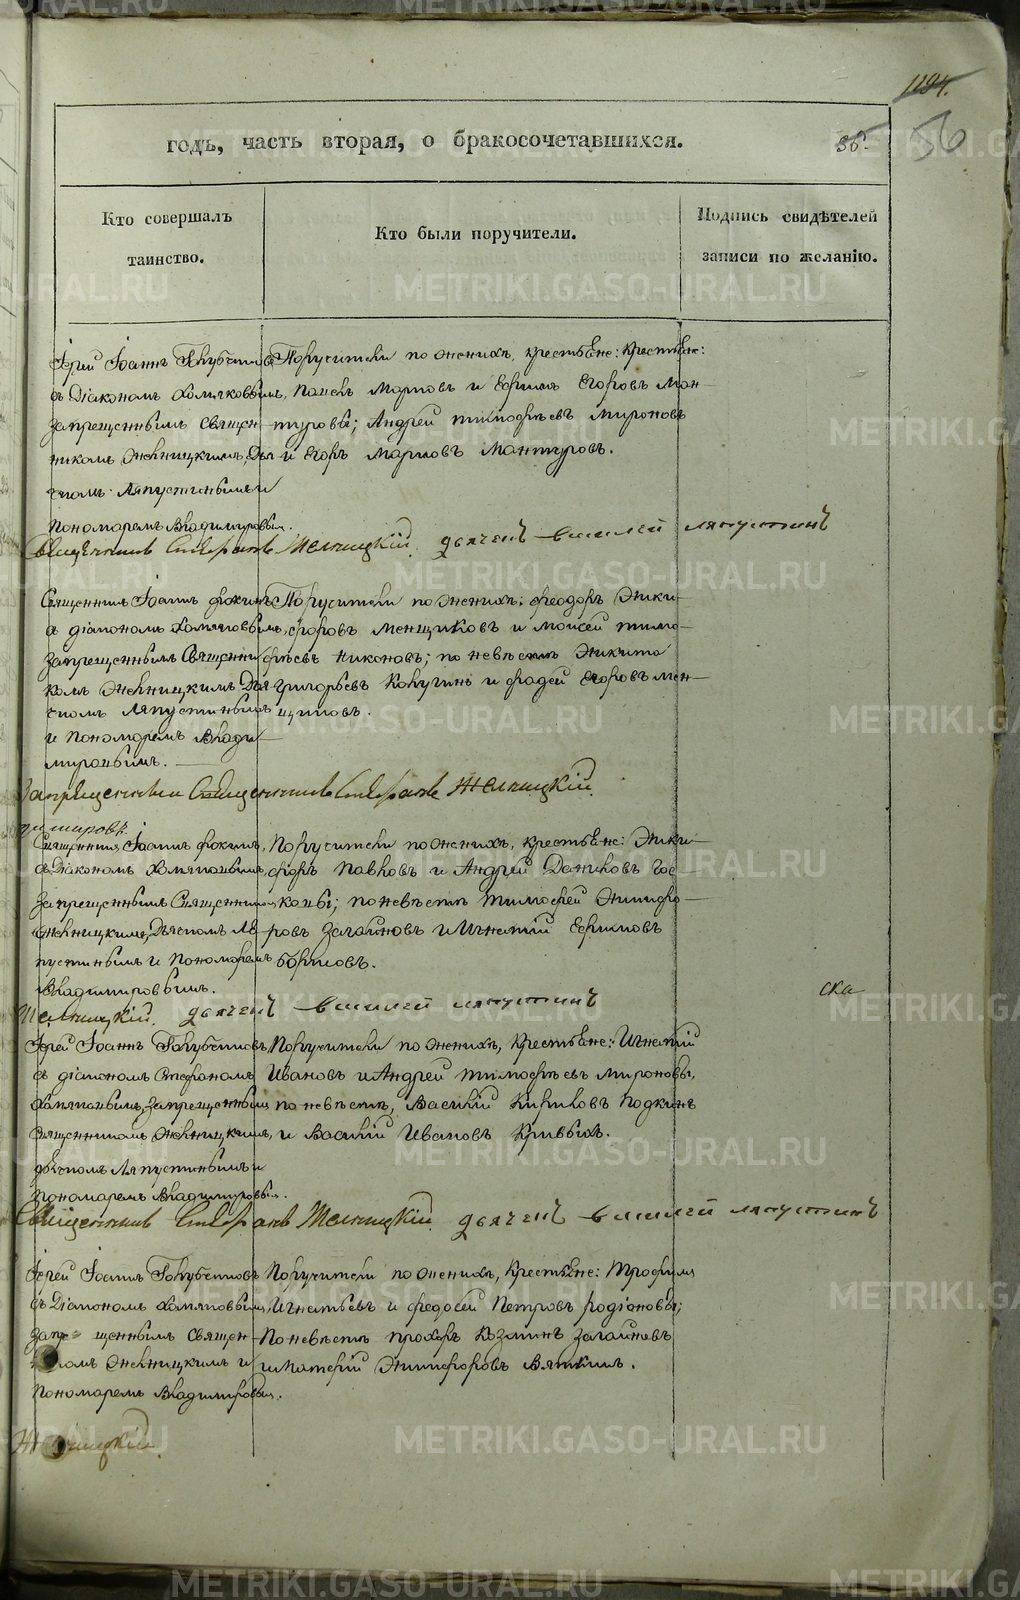 1194.
годъ, часть вторая, о бракосочетавшихся.
36. 56
Кто совершалъ
таинство.
Кто были поручители.
Подпись свидѣтелей
записи по желанію.
Іерей Іоаннъ Голубчиковъ
съ Діакономъ Хомяковымъ,
запрещеннымъ Священ-
никомъ Жельницкимъ, Дья
чкомъ Ляпустинымъ и
Пономаремъ Владимировым.
Поручители по женихѣ, крестьяне:
Павелъ Марковъ и Ефимъ Егоровъ Ман-
туровы; Андрей Тимофѣевъ Мироновъ
и Егоръ Марковъ Мантуровъ.
Священникъ Стефанъ Жельницкій. дьячекъ василей ляпустинъ
Священникъ Іоаннъ Фокинъ
съ діакономъ Хомяковымъ,
запрещеннымъ Священни
комъ Жельницкимъ Дья-
чкомъ Ляпустинымъ
и Пономаремъ Влади-
мировымъ.
Поручители по женихѣ: Феодоръ Ники-
форовъ Менщиковъ и Моисей Тимо-
фѣевъ Никоновъ; по невѣстѣ Никита
Григорьевъ Колугинъ и Фадей Егоровъ Мен-
щиковъ.
Запрещенный Священникъ Стефанъ Жельницкій.
Священникъ Іоаннъ Фокинъ,
съ Діакономъ Хомяковымъ,
запрещеннымъ Священником
Жельницкимъ, Дьячкомъ Ля-
пустинымъ и Пономаремъ
Владимировымъ.
Поручители по женихѣ, крестьяне: Ники-
форъ Павловъ и Андрей Даниловъ
по невѣстѣ Тимофей Никифо-
ровъ Загайновъ и Игнатій Ефимовъ
Борисовъ.
Жельницкій. дьячекъ василей ляпустинъ
Іерей Іоаннъ Голубчиковъ,
съ діакономъ Стефаномъ
Хомяковымъ, запрещеннымъ
Священникомъ Жельницкимъ,
дьячкомъ Ляпустинымъ и
Пономаремъ Владимировым.
Поручители по женихѣ, крестьяне: Игнатій
Ивановъ и Андрей Тимофѣевъ Мироновы,
по невѣстѣ, Василій Кириловъ
и Василій Ивановъ Кривыхъ.
Священникъ Стефанъ Жельницкій. дьячекъ василей ляпустинъ
Іерей Іоаннъ Голубчиковъ
съ Діакономъ Хомяковымъ,
щеннымъ Священ-
комъ Жельницкимъ и
Пономаремъ Владимировым.
Поручители по женихѣ, крестьяне: Трофимъ
Игнатьевъ и Федосей Петровъ Родіоновы;
По невѣстѣ Прохоръ Козминъ Загайновъ
и Матвій Никифоровъ Вяткинъ.
Жельницкій.
METRIKI.GASO-URAL.RU